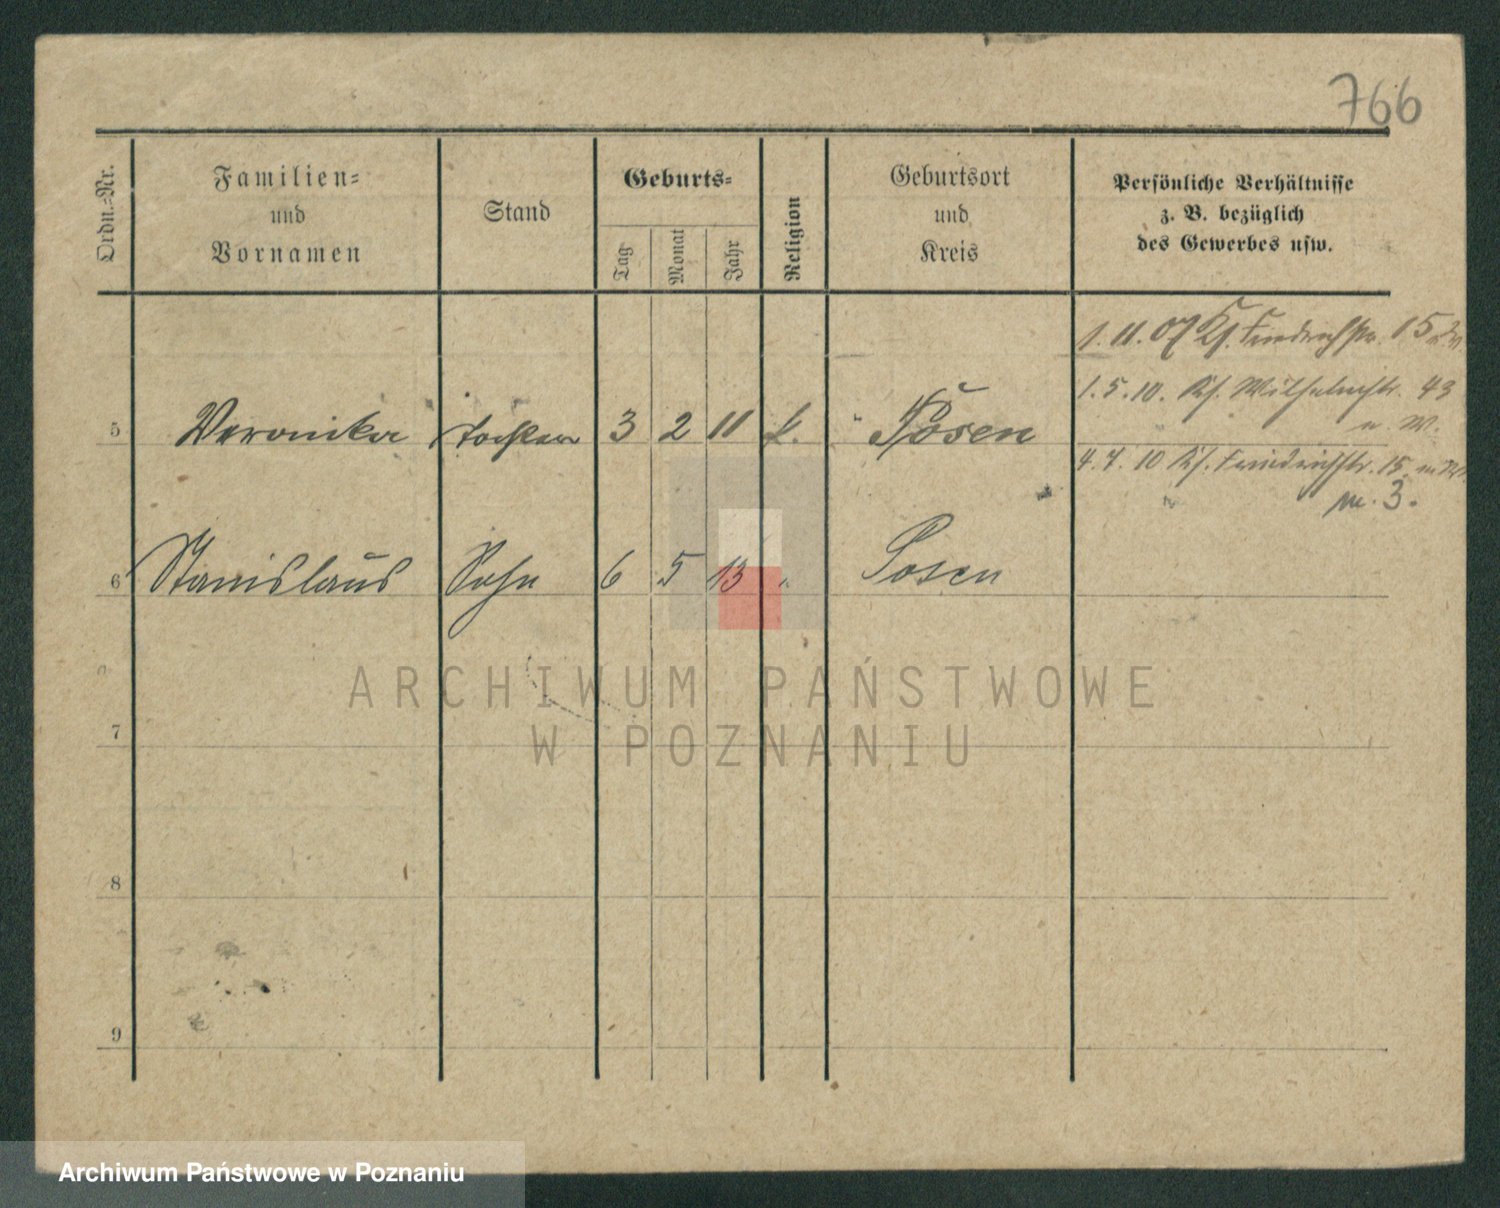 766
Ordn.-Nr.
Familien-
und
Vornamen
Stand
Geburts-
Tag
Monat
Jahr
Religion
Geburtsort
und
Kreis
Persönliche Verhältnisse
z. B. bezüglich
des Gewerbes usw.
1. 11. 07 Kf. Friedrichstr. 15
1. 5. 10. Kf. Wilhelmstr. 43
u. W.
5 Veronika Tochter 3 2 11 k. Posen
4. 7. 10 Kf. Friedrichstr. 15
3.
6 Stanislaus Sohn 6 5 13 " Posen
7
8
9
ARCHIWUM PAŃSTWOWE
W POZNANIU
Archiwum Państwowe w Poznaniu